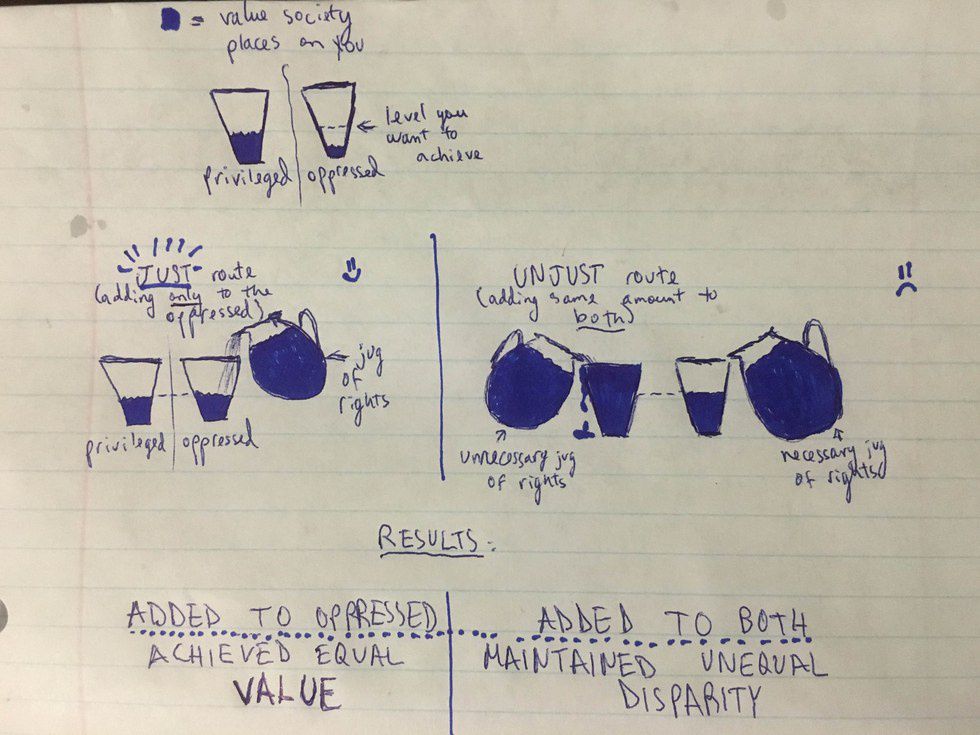 = value society
places on you
level you
want to
achieve
privileged
oppressed
JUST route
(adding only to the
oppressed)
jug
of
rights
privileged
oppressed
UNJUST route
(adding same amount to
both)
unnecessary jug
of rights
necessary jug
of rights
RESULTS:
ADDED TO OPPRESSED
ACHIEVED EQUAL
VALUE
ADDED TO BOTH
MAINTAINED UNEQUAL
DISPARITY